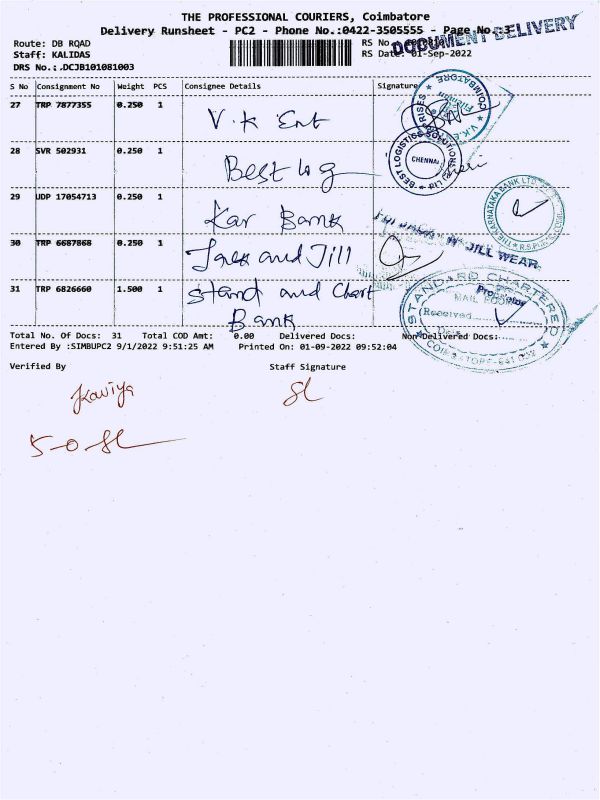 THE PROFESSIONAL COURIERS, Coimbatore
Delivery Runsheet - PC2 - Phone No.:0422-3505555 - Page No.:3
DOCUMENT DELIVERY
Route: DB RQAD
RS No.
Staff: KALIDAS
RS Date: 01-Sep-2022
DRS No.: .DCJB101081003
S No Consignment No Weight PCS Consignee Details Signature
27 TRP 7877355 0.250 1 V.K Ent
COIMBATORE
28 SVR 502931 0.250 1 Best log
BEST LOGISTICS SOLUTIONS
CHENNAI
29 UDP 17054713 0.250 1 Kar Bank
THE KARNATAKA BANK LTD.
30 TRP 6687868 0.250 1 Jack and Jill
For JACK 'N' JILL WEAR
Proprietor
31 TRP 6826660 1.500 1 Stand and Chart Bank
STANDARD CHARTERED
MAIL ROOM
(Received
Date
COIMBATORE-641
Total No. Of Docs: 31 Total COD Amt: 0.00 Delivered Docs: Non-Delivered Docs:
Entered By :SIMBUPC2 9/1/2022 9:51:25 AM Printed On: 01-09-2022 09:52:04
Verified By Staff Signature
Kaviya